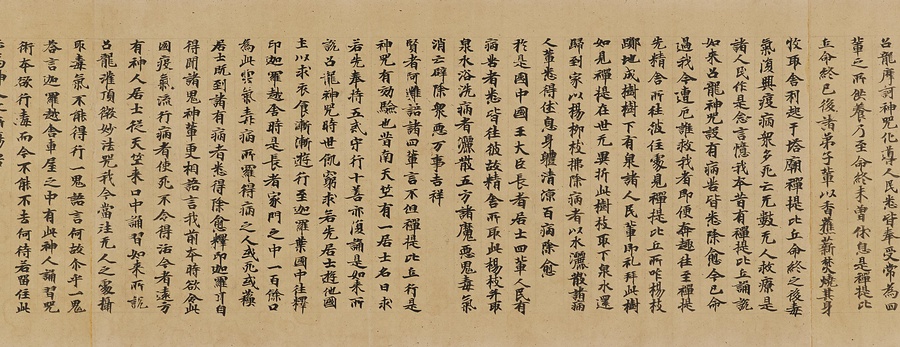 呂龍摩訶神呪化導人民悉皆奉受常為四
輩之所供養乃至命終未曾休息是禪提比
丘命終已後諸弟子輩以香薪焚燒其身
收取舍利起于塔廟禪提比丘命終之後毒
氣復興疫病衆多死亡无數无人救療是
諸人民作是念言憶我本昔有禪提比丘誦說
如來呂龍神呪設有病苦皆悉除愈今已命
過我今遭厄誰救我者即便奔趣往至禪提
先精舍所往彼住處見禪提比丘所咋楊枝
擲地成樹樹下有泉諸人民輩即礼拜此樹
如見禪提在世无異折此樹枝取下泉水還
歸到家以楊柳枝拂除病者以水灑散諸病
人輩悉得休息身軆清涼百病除愈
於是國中國王大臣長者居士四輩人民有
病苦者悉皆往彼故精舍所取此楊枝并取
泉水浴洗病者灑散五方諸魔惡鬼毒氣
消亡辟除衆惡万事吉祥
賢者阿難語諸四輩言不但禪提比丘行是
神呪有効驗也昔南天竺有一居士名曰求
若先奉持五戒守行十善亦復誦是如來所
說呂龍神呪時世飢窮求若先居士遊他國
土以求衣食漸漸遊行至迦羅業國中往釋
印迦羅越舍時是長者家門之中一百餘口
為此氣毒病所羅得病之人或死或穢
居士既到諸有病者悉得除愈釋印迦羅自
得聞諸鬼神輩更相語言我前本時欲令此
國疫氣流行病者使死不令得活今者遠方
有神人居士從天竺來口中誦習如來所說
呂龍灌頂微妙法呪我今當注无人之處攝
取毒氣不能得行一鬼語言何故尒乎一鬼
荅言迦羅越舍車屋之中有此神人誦習呪
術本欲行毒而今不能不去何待若留住此